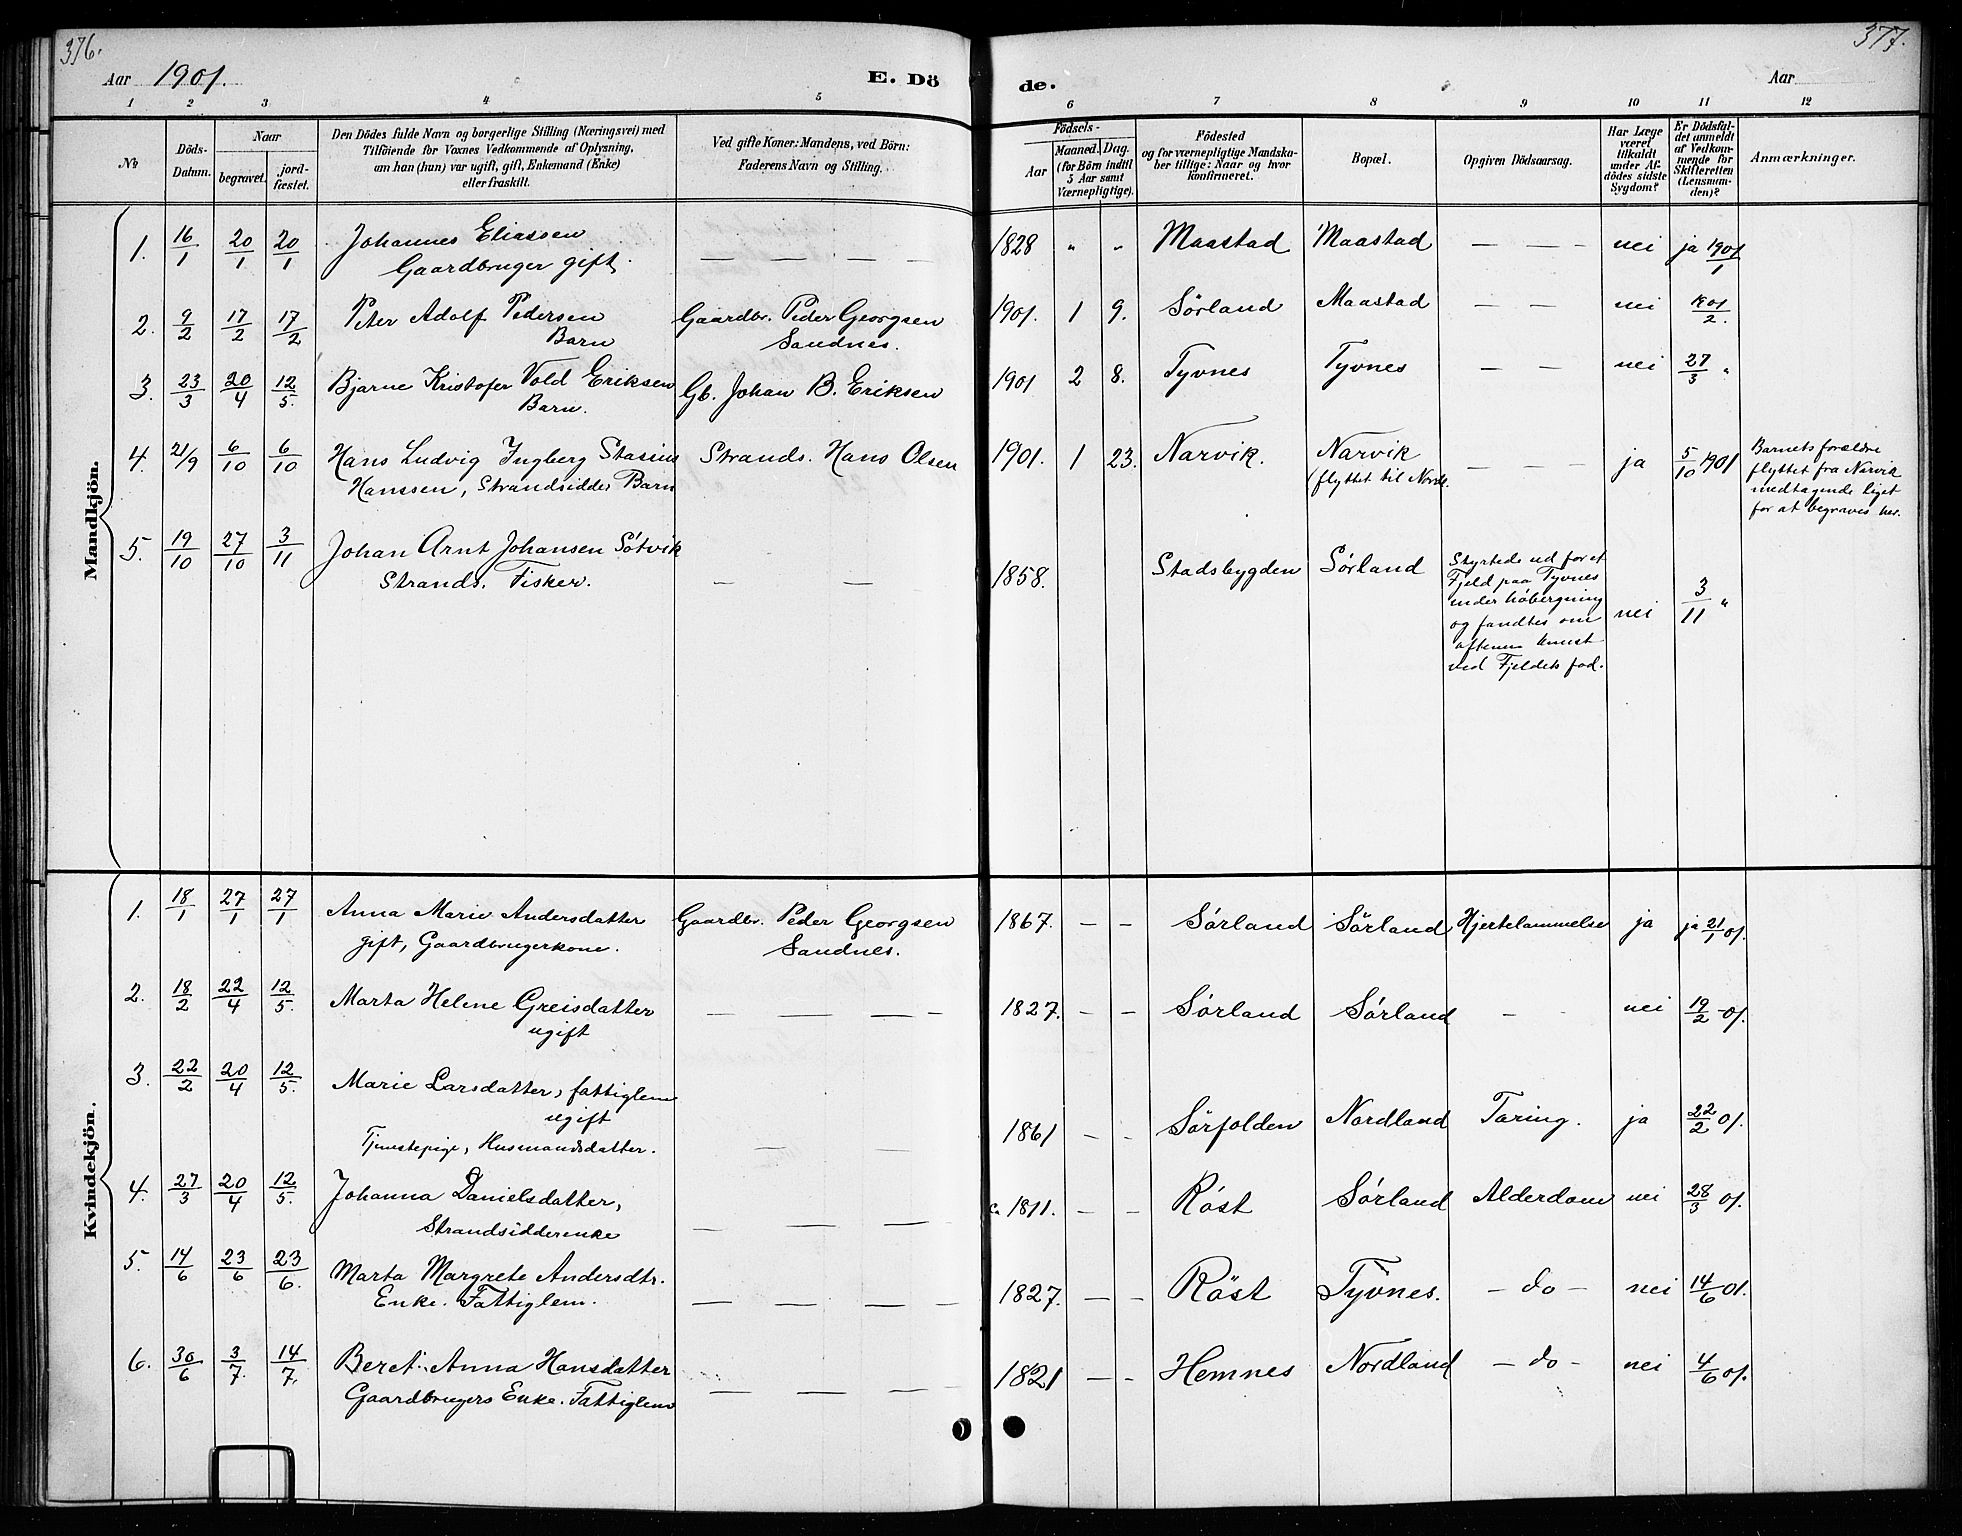 376.
377.
Aar 1901. E. Dö
de. Aar
1 2 3 4 5
6 7 8 9 10 11 12
No
Döds-
Datum.
Naar
begravet.
jord-
fæstet.
Den Dödes fulde Navn og borgerlige Stilling (Næringsvei) med
Tilföiende for Voxnes Vedkommende af Oplysning,
om han (hun) var ugift, gift, Enkemand (Enke)
eller fraskilt.
Ved gifte Koner: Mandens, ved Börn:
Faderens Navn og Stilling.
Födsels-
Aar
Maaned. Dag.
(for Börn indtil
5 Aar samt
Værnepligtige).
Födested
og for værnepligtige Mandska-
ber tillige: Naar og hvor
konfirmeret.
Bopæl.
Opgiven Dödsaarsag.
Har Læge
været
tilkaldt
under Af-
dödes sidste
Sygdom?
Er Dödsfal-
det anmeldt
af Vedkom-
mende for
Skifteretten
(Lensman-
den)?
Anmærkninger.
Mandkjön.
1. 16/1 20/1 20/1 Johannes Eliassen — — — — 1828 " " Maastad Maastad — — — nei ja 1901/1
Gaardbruger gift.
2. 9/2 17/2 17/2 Peter Adolf Pedersen Gaardbr. Peder Georgsen 1901. 1 9. Sørland Maastad — — nei 1901/2.
Barn Sandnes.
3. 23/3 20/4 12/5. Bjarne Kristofer Vold Eriksen Gb. Johan B. Eriksen 1901 2 8. Tyvnes Tyvnes — — nei 27/3 "
Barn.
4. 21/9 6/10 6/10 Hans Ludvig Ingberg Stasius Strands. Hans Olsen 1901. 1 23. Narvik. Narvik — — — ja 5/10 1901
Hanssen, Strandsidder Barn (flyttet til Nordl.
Barnets forældre
flyttet fra Narvik
medtagende liget
for at begraves her.
5. 19/10 27/10 3/11 Johan Arnt Johansen Søtvik — — 1858. Stadsbygden Sørland
Strands. Fisker.
Styrtede ud for et
Fjeld paa Tyvnes
under høbergning
og fandtes om
aftenen knust
ved Fjeldets fod.
nei 3/11 "
Kvindekjön.
1. 18/1 27/1 27/1 Anna Marie Andersdatter Gaardbr. Peder Georgsen 1867. — — Sørland Sørland Hjertelammelse ja ja 21/1 01.
gift, Gaardbrugerkone. Sandnes.
2. 18/2 22/4 12/5. Marta Helene Greisdatter — — — — 1827. — — Sørland Sørland — — nei 19/2 -01.
ugift
3. 22/2 20/4 12/5. Marie Larsdatter, fattiglem
ugift
Tjenestepige, Husmandsdatter. — — 1861 — — Sørfolden Nordland Tæring. ja 22/2 01.
4. 27/3 20/4 12/5. Johanna Danielsdatter, — — — c. 1811. — — Røst Sørland Alderdom nei 28/3 01.
Strandsidderenke
5. 14/6 23/6 23/6. Marta Margrete Andersdtr. — — — — 1827. — — Røst Tyvnes. — do — nei 14/6 01.
Enke. Fattiglem.
6. 30/6 3/7. 14/7. Beret Anna Hansdatter — — — — 1821 — — Hemnes Nordland — do — nei 4/6 01.
Gaardbrugers Enke. Fattiglem